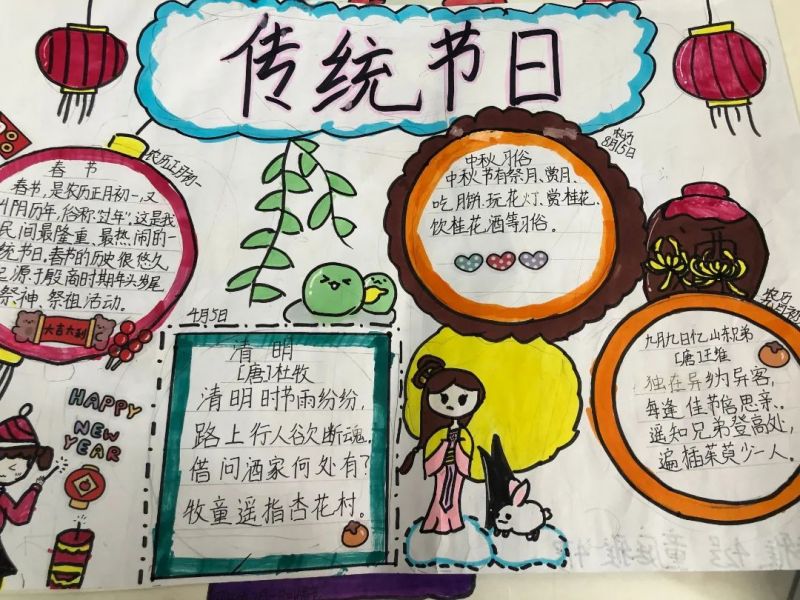 传统节日
农历正月初一
春节
春节,是农历正月初一,又
叫阴历年,俗称“过年”,这是我
民间最隆重、最热闹的一
统节日。春节的历史很悠久
起源于殷商时期年头岁尾
祭神、祭祖活动。
大吉大利
HAPPY
NEW
YEAR
4月5日
清明
[唐]杜牧
清明时节雨纷纷,
路上行人欲断魂。
借问酒家何处有?
牧童遥指杏花村。
农历
8月15日
中秋习俗
中秋节有祭月、赏月、
吃月饼、玩花灯、赏桂花、
饮桂花酒等习俗。
酒
农历
月初九
九月九日忆山东兄弟
[唐]王维
独在异乡为异客,
每逢佳节倍思亲。
遥知兄弟登高处,
遍插茱萸少一人。